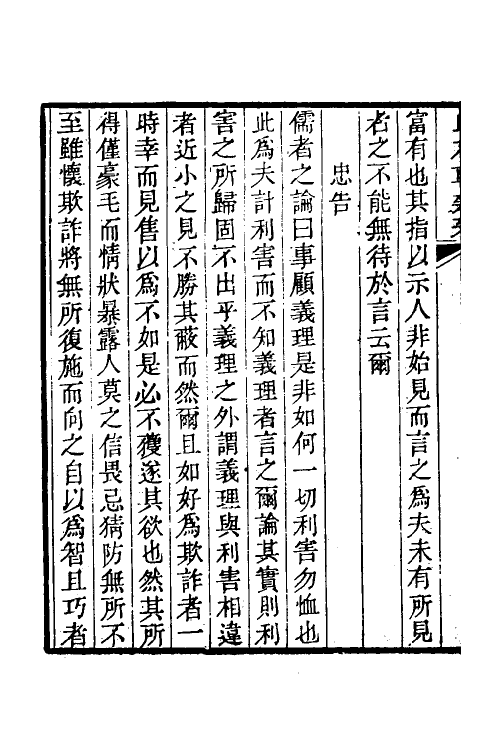 富有也其指以示人非始見而言之爲夫未有所見
者之不能無待於言云爾
忠告
儒者之論曰事顧義理是非如何一切利害勿恤也
此爲夫計利害而不知義理者言之爾論其實則利
害之所歸固不出乎義理之外謂義理與利害相違
者近小之見不勝其蔽而然爾且如好爲欺詐者一
時幸而見售以爲不如是必不獲遂其欲也然其所
得僅豪毛而情狀暴露人莫之信畏忌猜防無所不
至雖懷欺詐將無所復施而向之自以爲智且巧者